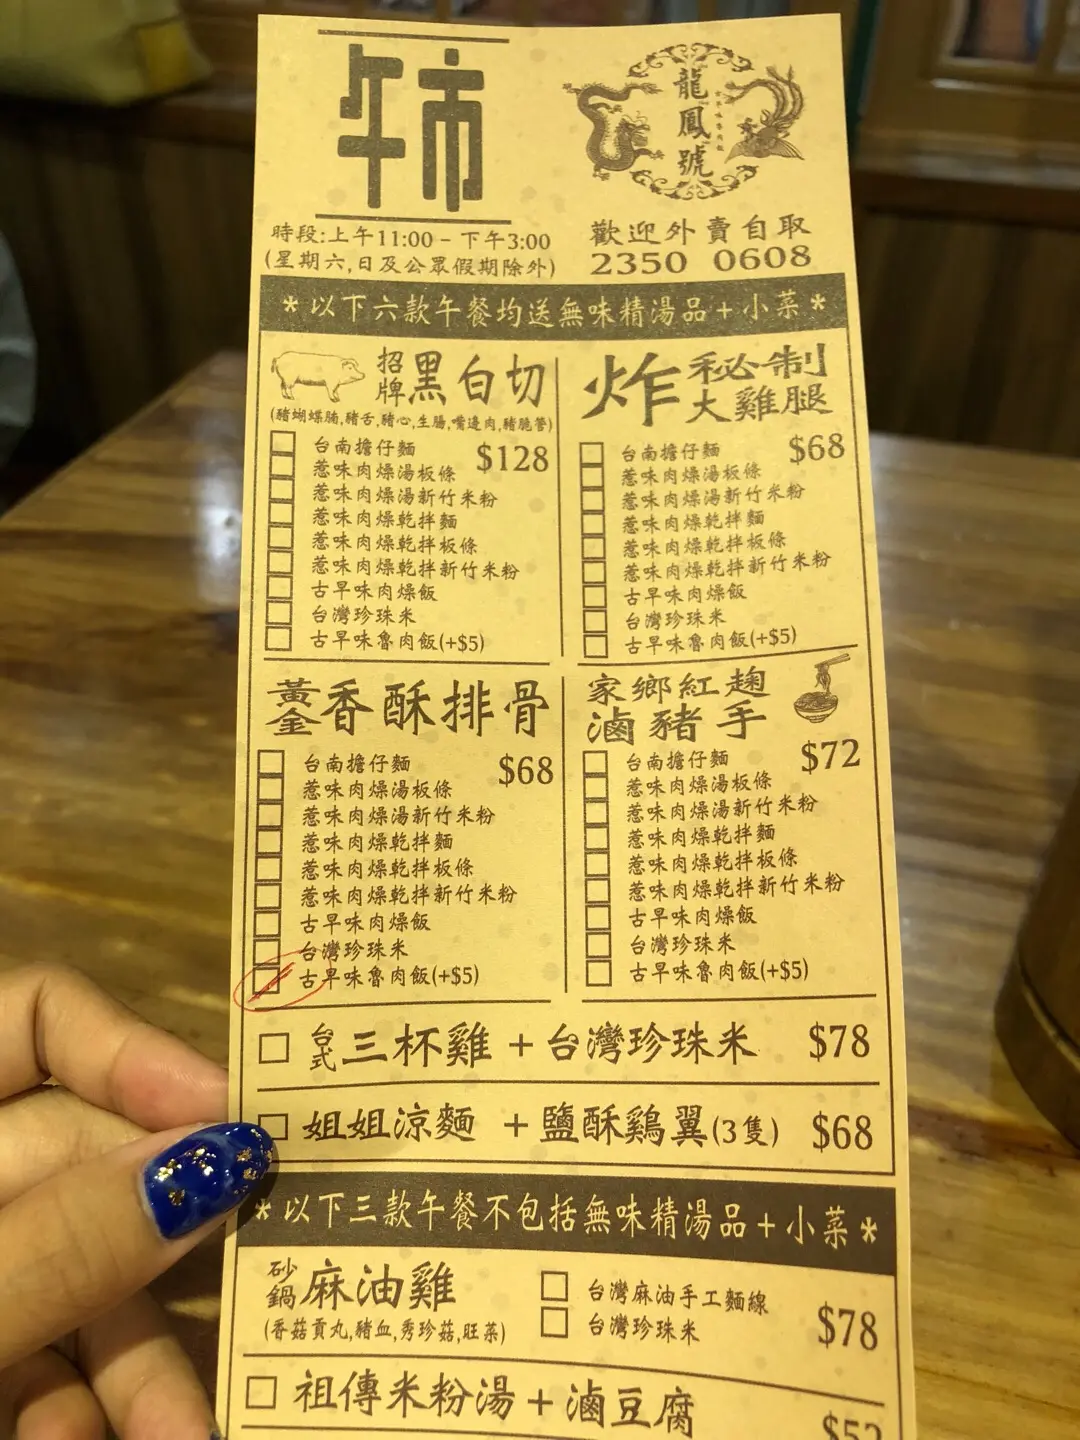 午市
龍鳳號
時段:上午11:00 – 下午3:00
(星期六,日及公眾假期除外)
歡迎外賣自取
2350 0608
* 以下六款午餐均送無味精湯品+小菜 *
招牌黑白切
(豬蝴蝶腩,豬舌,豬心,生腸,嘴邊肉,豬脆管)
$128
台南擔仔麵
惹味肉燥湯板條
惹味肉燥湯新竹米粉
惹味肉燥乾拌麵
惹味肉燥乾拌板條
惹味肉燥乾拌新竹米粉
古早味肉燥飯
台灣珍珠米
古早味魯肉飯(+$5)
炸秘制大雞腿
$68
台南擔仔麵
惹味肉燥湯板條
惹味肉燥湯新竹米粉
惹味肉燥乾拌麵
惹味肉燥乾拌板條
惹味肉燥乾拌新竹米粉
古早味肉燥飯
台灣珍珠米
古早味魯肉飯(+$5)
黃金香酥排骨
$68
台南擔仔麵
惹味肉燥湯板條
惹味肉燥湯新竹米粉
惹味肉燥乾拌麵
惹味肉燥乾拌板條
惹味肉燥乾拌新竹米粉
古早味肉燥飯
台灣珍珠米
古早味魯肉飯(+$5)
家鄉紅麴
滷豬手
$72
台南擔仔麵
惹味肉燥湯板條
惹味肉燥湯新竹米粉
惹味肉燥乾拌麵
惹味肉燥乾拌板條
惹味肉燥乾拌新竹米粉
古早味肉燥飯
台灣珍珠米
古早味魯肉飯(+$5)
台式三杯雞 + 台灣珍珠米 $78
姐姐涼麵 + 鹽酥鷄翼(3隻) $68
* 以下三款午餐不包括無味精湯品+小菜 *
砂鍋麻油雞
(香菇貢丸,豬血,秀珍菇,旺菜)
台灣麻油手工麵線
台灣珍珠米
$78
祖傳米粉湯+滷豆腐 $52